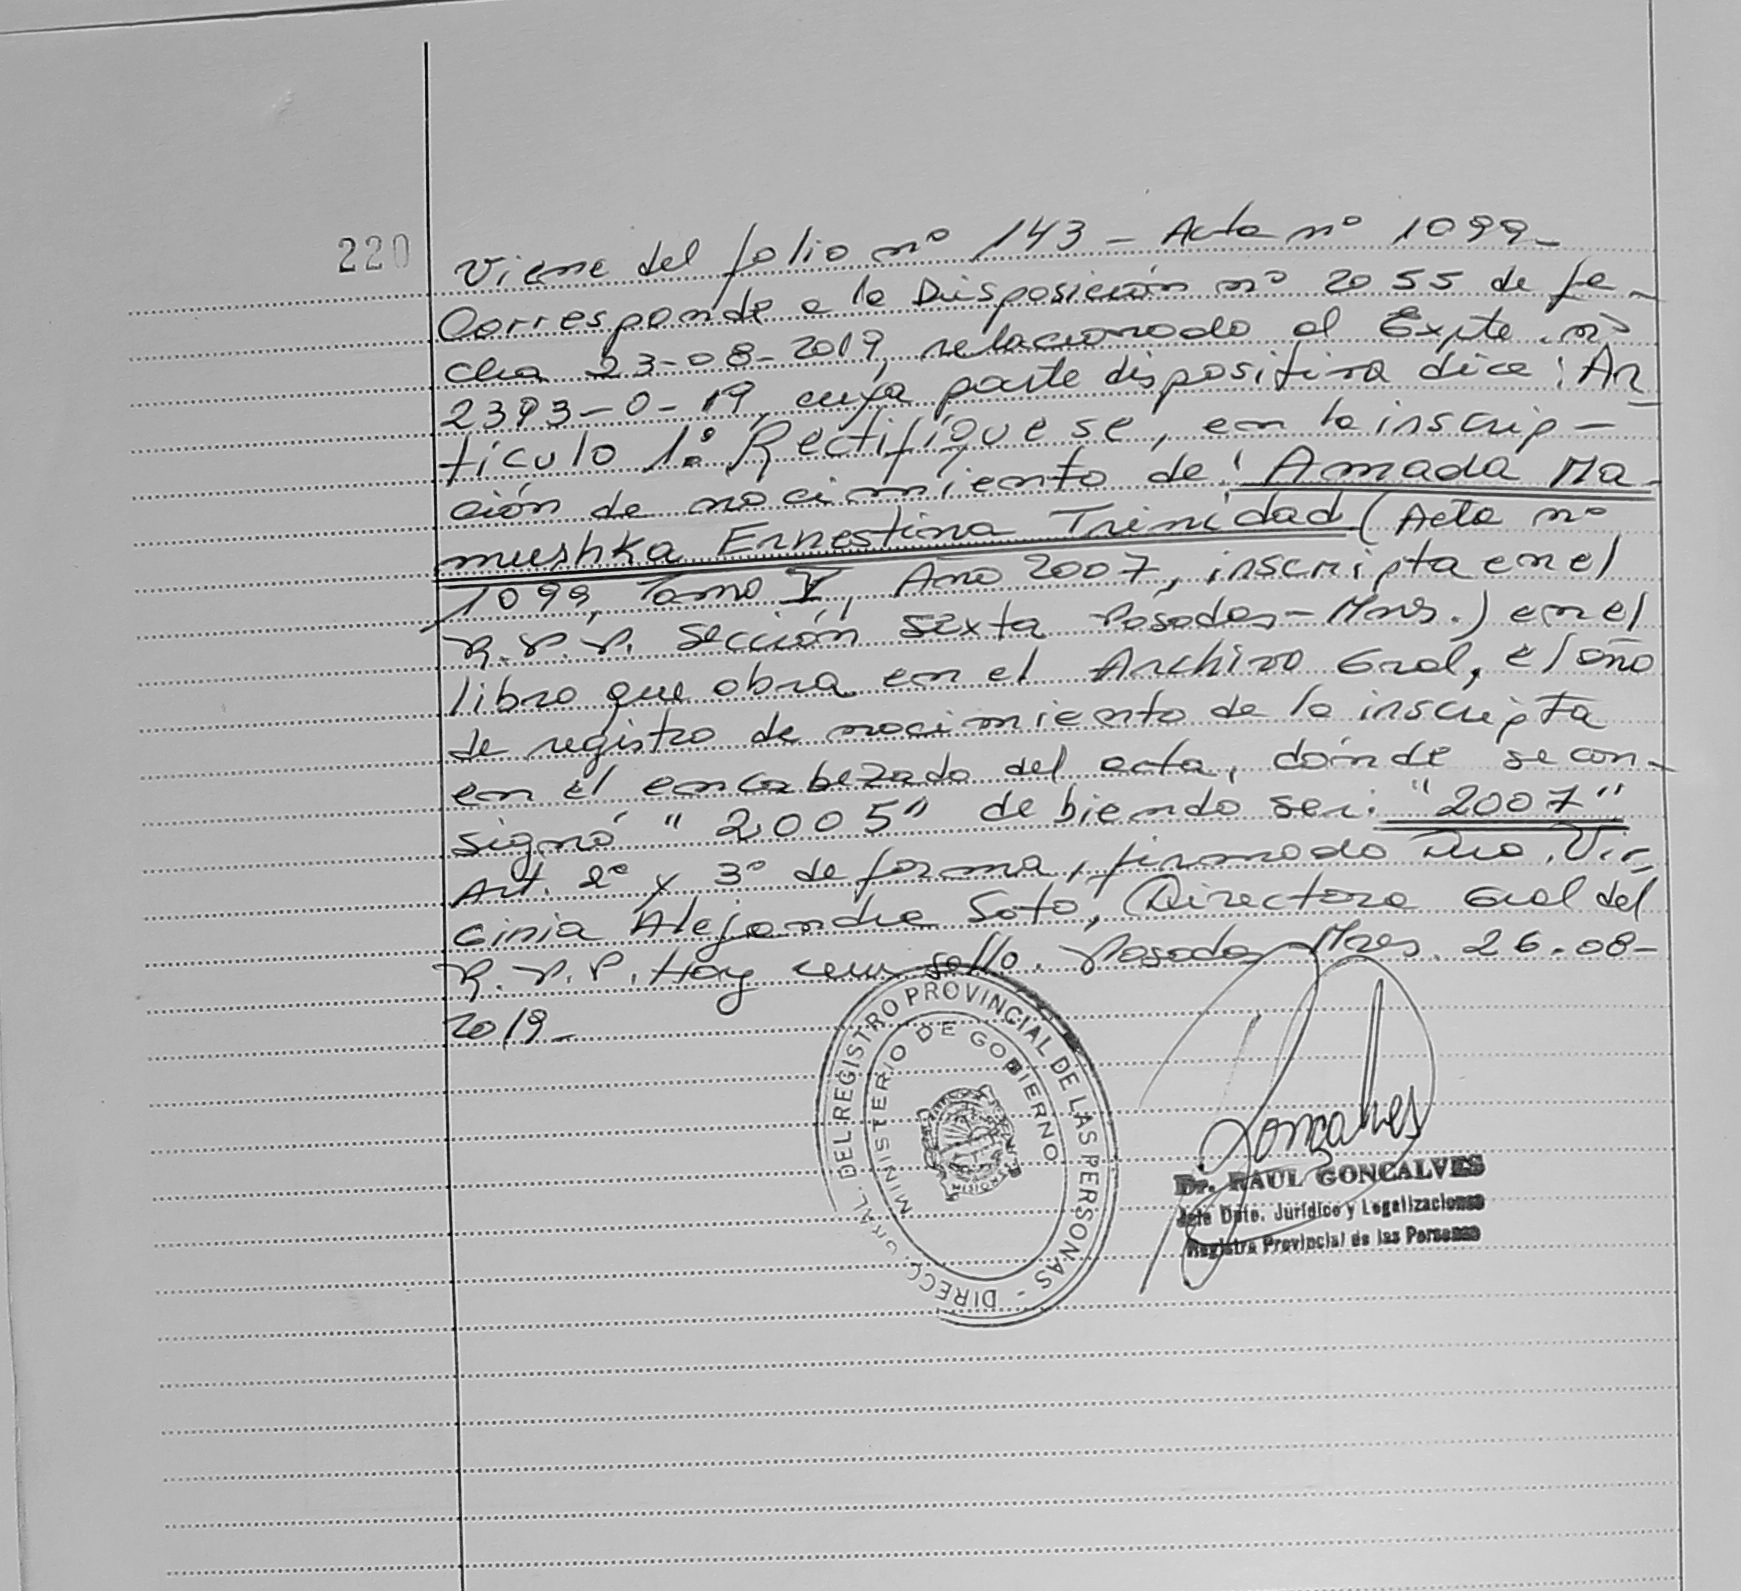 220
Viene del folio nº 143 - Acta nº 1099-
Corresponde a la Disposición nº 2055 de fe-
cha 23-08-2019, relacionado al Expte. nº
2393-0-19, cuya parte dispositiva dice: Ar-
tículo 1º: Rectifíquese, en la inscrip-
ción de nacimiento de: Amada Ma-
mushka Ernestina Trinidad (Acta nº
1099, Tomo V, Año 2007, inscripta en el
R.P.P. Sección Sexta Posadas-Mnes.) en el
libro que obra en el Archivo Gral, el año
de registro de nacimiento de la inscripta
en el encabezado del acta, dónde se con-
signó "2.005" debiendo ser: "2007"
Art. 2º y 3º de forma, firmado Dra. Vir-
ginia Alejandra Soto, Directora Gral del
R.P.P. Hay un sello. Posadas Mnes. 26-08-
2019-
DIRECC. GRAL. DEL REGISTRO PROVINCIAL DE LAS PERSONAS -
MINISTERIO DE GOBIERNO
MISIONES
Gonçalves
Dr. RAUL GONCALVES
Jefe Dpto. Jurídico y Legalizaciones
Registro Provincial de las Personas